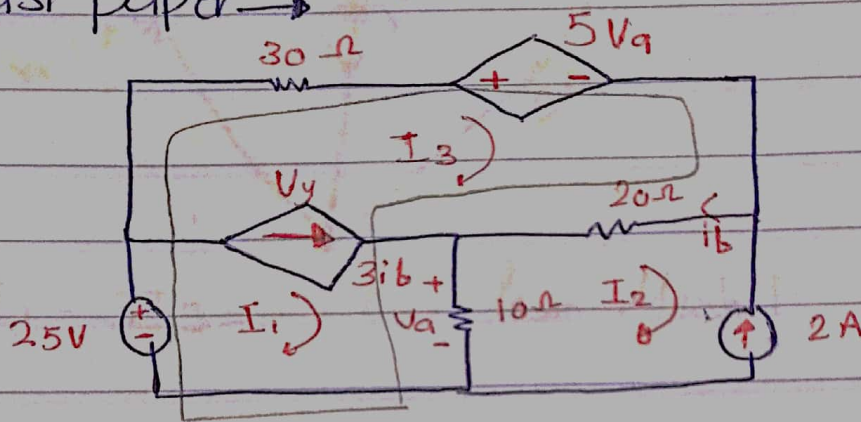 paper →
30 Ω
5 Va
+ -
I3
Vy
20 Ω
ib
3ib
+
Va
-
10 Ω
I1
I2
25V
+
-
2 A